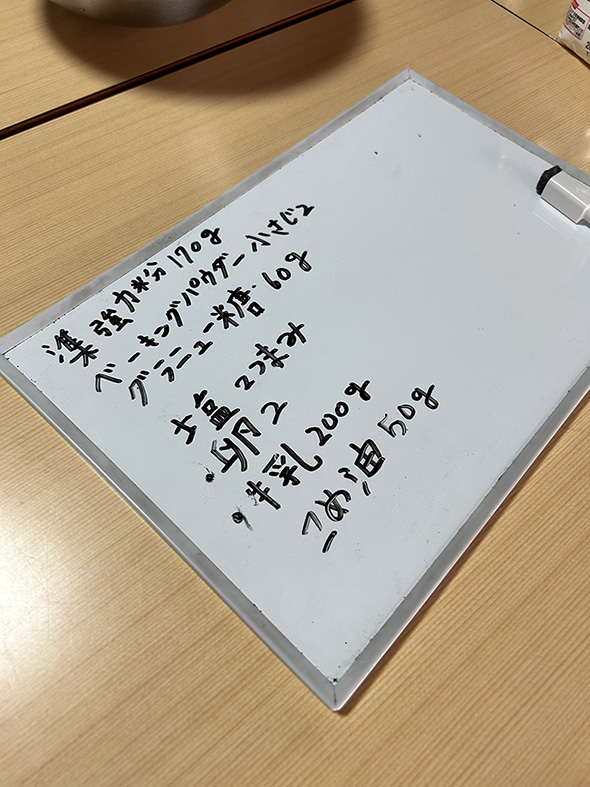 準強力粉 170g
ベーキングパウダー 小さじ2
グラニュー糖 60g
塩 2つまみ
・卵 2
・牛乳 200g
こめ油 50g